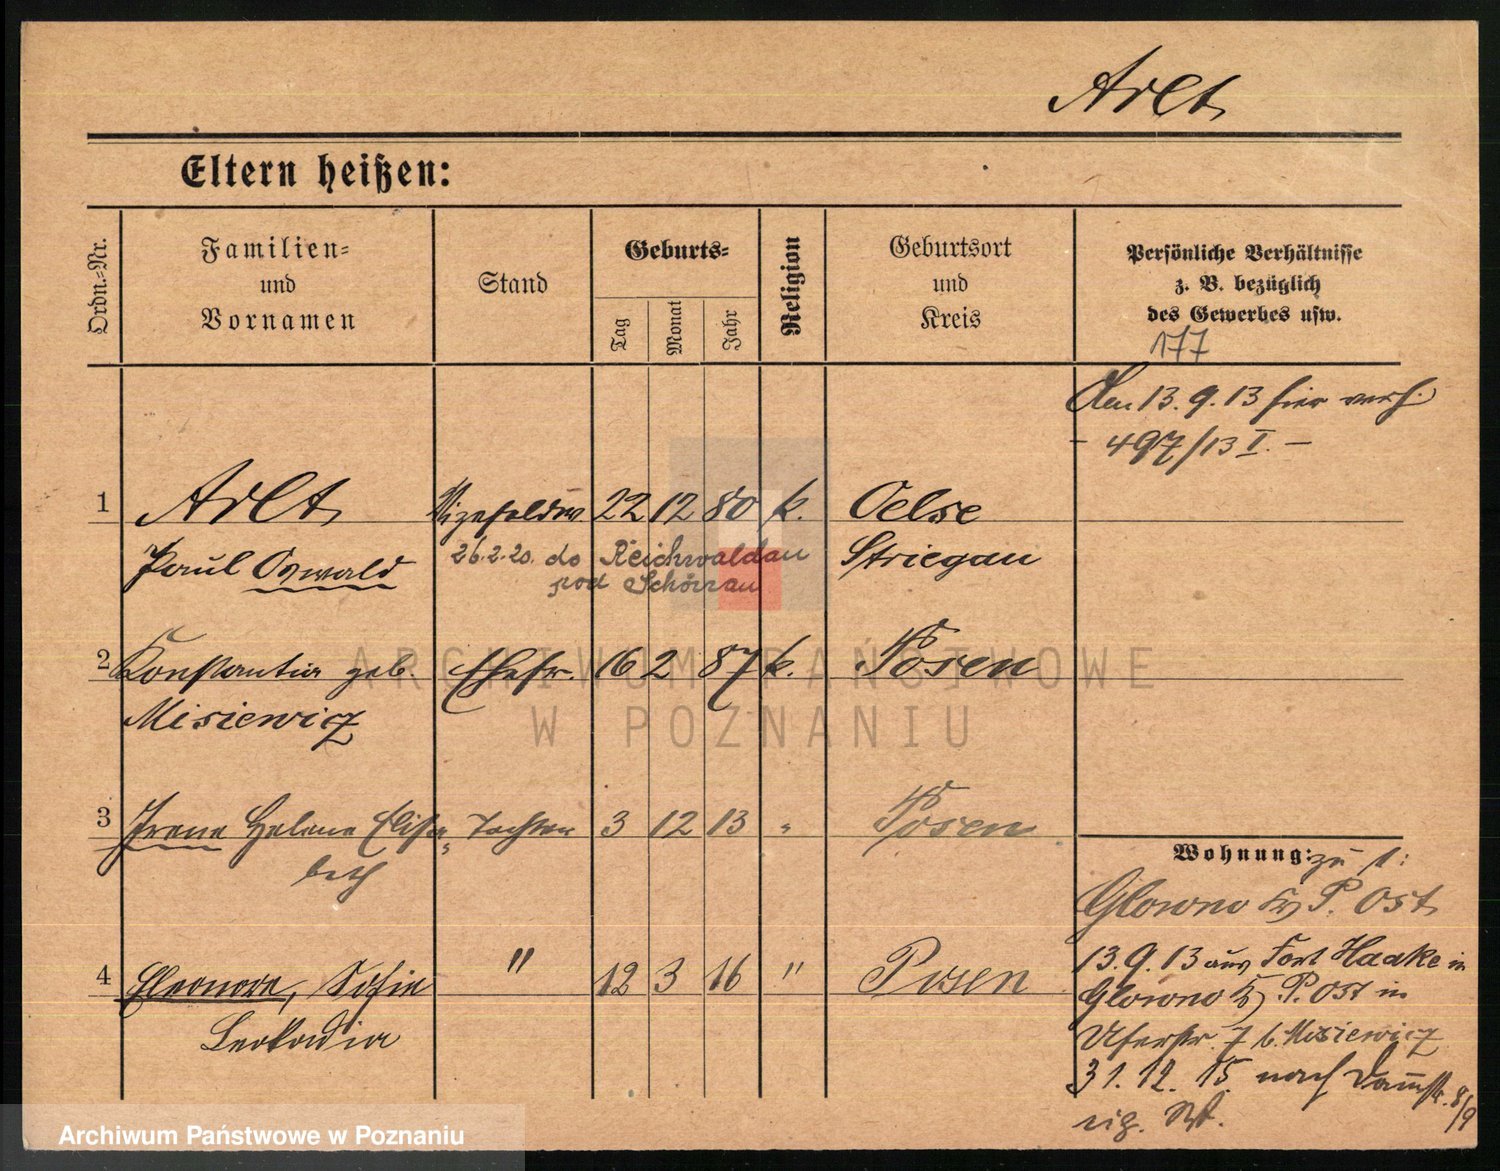 Arlt
Eltern heißen:
Ordn.-Nr.
Familien-
und
Vornamen
Stand
Geburts-
Tag
Monat
Jahr
Religion
Geburtsort
und
Kreis
Persönliche Verhältnisse
z. B. bezüglich
des Gewerbes usw.
177
Den 13. 9. 13 hier verh.
- 497/13 I. -
1 Arlt Vizefeldw. 22 12 80 k. Oelse
Paul Oswald Striegau
26.2.20. do Reichwaldau
pod Schönau
2 Konstantia geb. Ehefr. 16 2 87 k. Posen
Misiewicz
3 Irene Helene Elisa= Tochter 3 12 13 " Posen
beth
4 Eleonore, Sofie " 12 3 16 " Posen
Leokadia
Wohnung: zu 1:
Glowno Kr P. Ost
13.9.13 aus Fort Haake in
Glowno Kr. P. Ost in
Uferstr. 7 b. Misiewicz
31. 12. 15. nach Dammstr. 8/9
ARCHIWUM PAŃSTWOWE
W POZNANIU
Archiwum Państwowe w Poznaniu